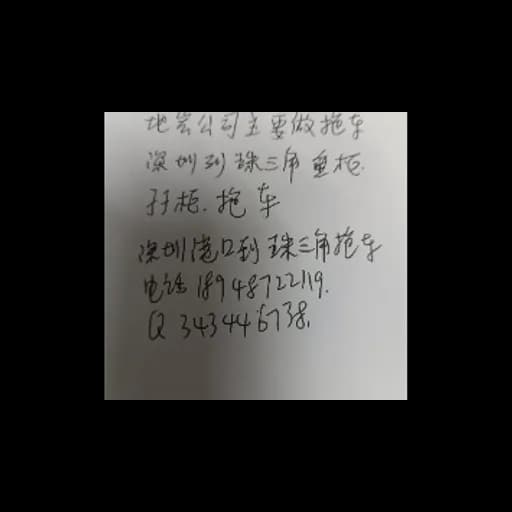 地岩公司主要做拖车
深圳到珠三角重柜.
孖柜.拖车
深圳港口到珠三角拖车
电话18948722119.
Q 343446738.